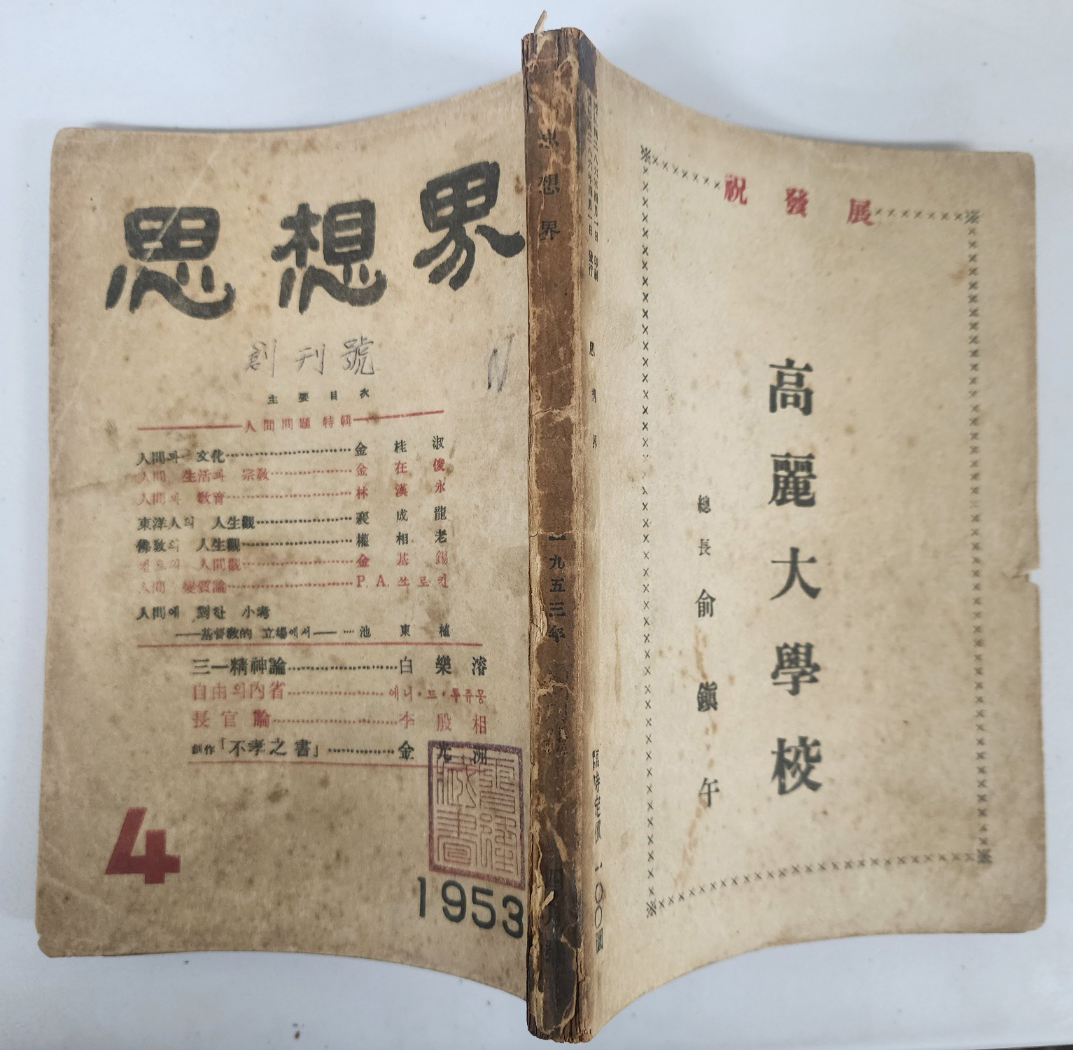 思想界
創刊號
主要目次
人間問題 特輯
人間과 文化 金桂淑
人間 生活과 宗敎 金在俊
人間과 敎育 林漢永
東洋人의 人生觀 裵成龍
佛敎의 人生觀 權相老
人間觀 金基錫
人間 變質論 P.A.쏘로킨
人間에 對한 小考
基督敎的 立場에서 池東植
三一精神論 白樂濬
自由의 內省 에니·드·루쥬몽
長官論 李殷相
創作「不孝之書」 金光洲
4
1953
思想界
一九五三年
臨時定價 一〇〇圜
祝發展
高麗大學校
總長 俞鎭午